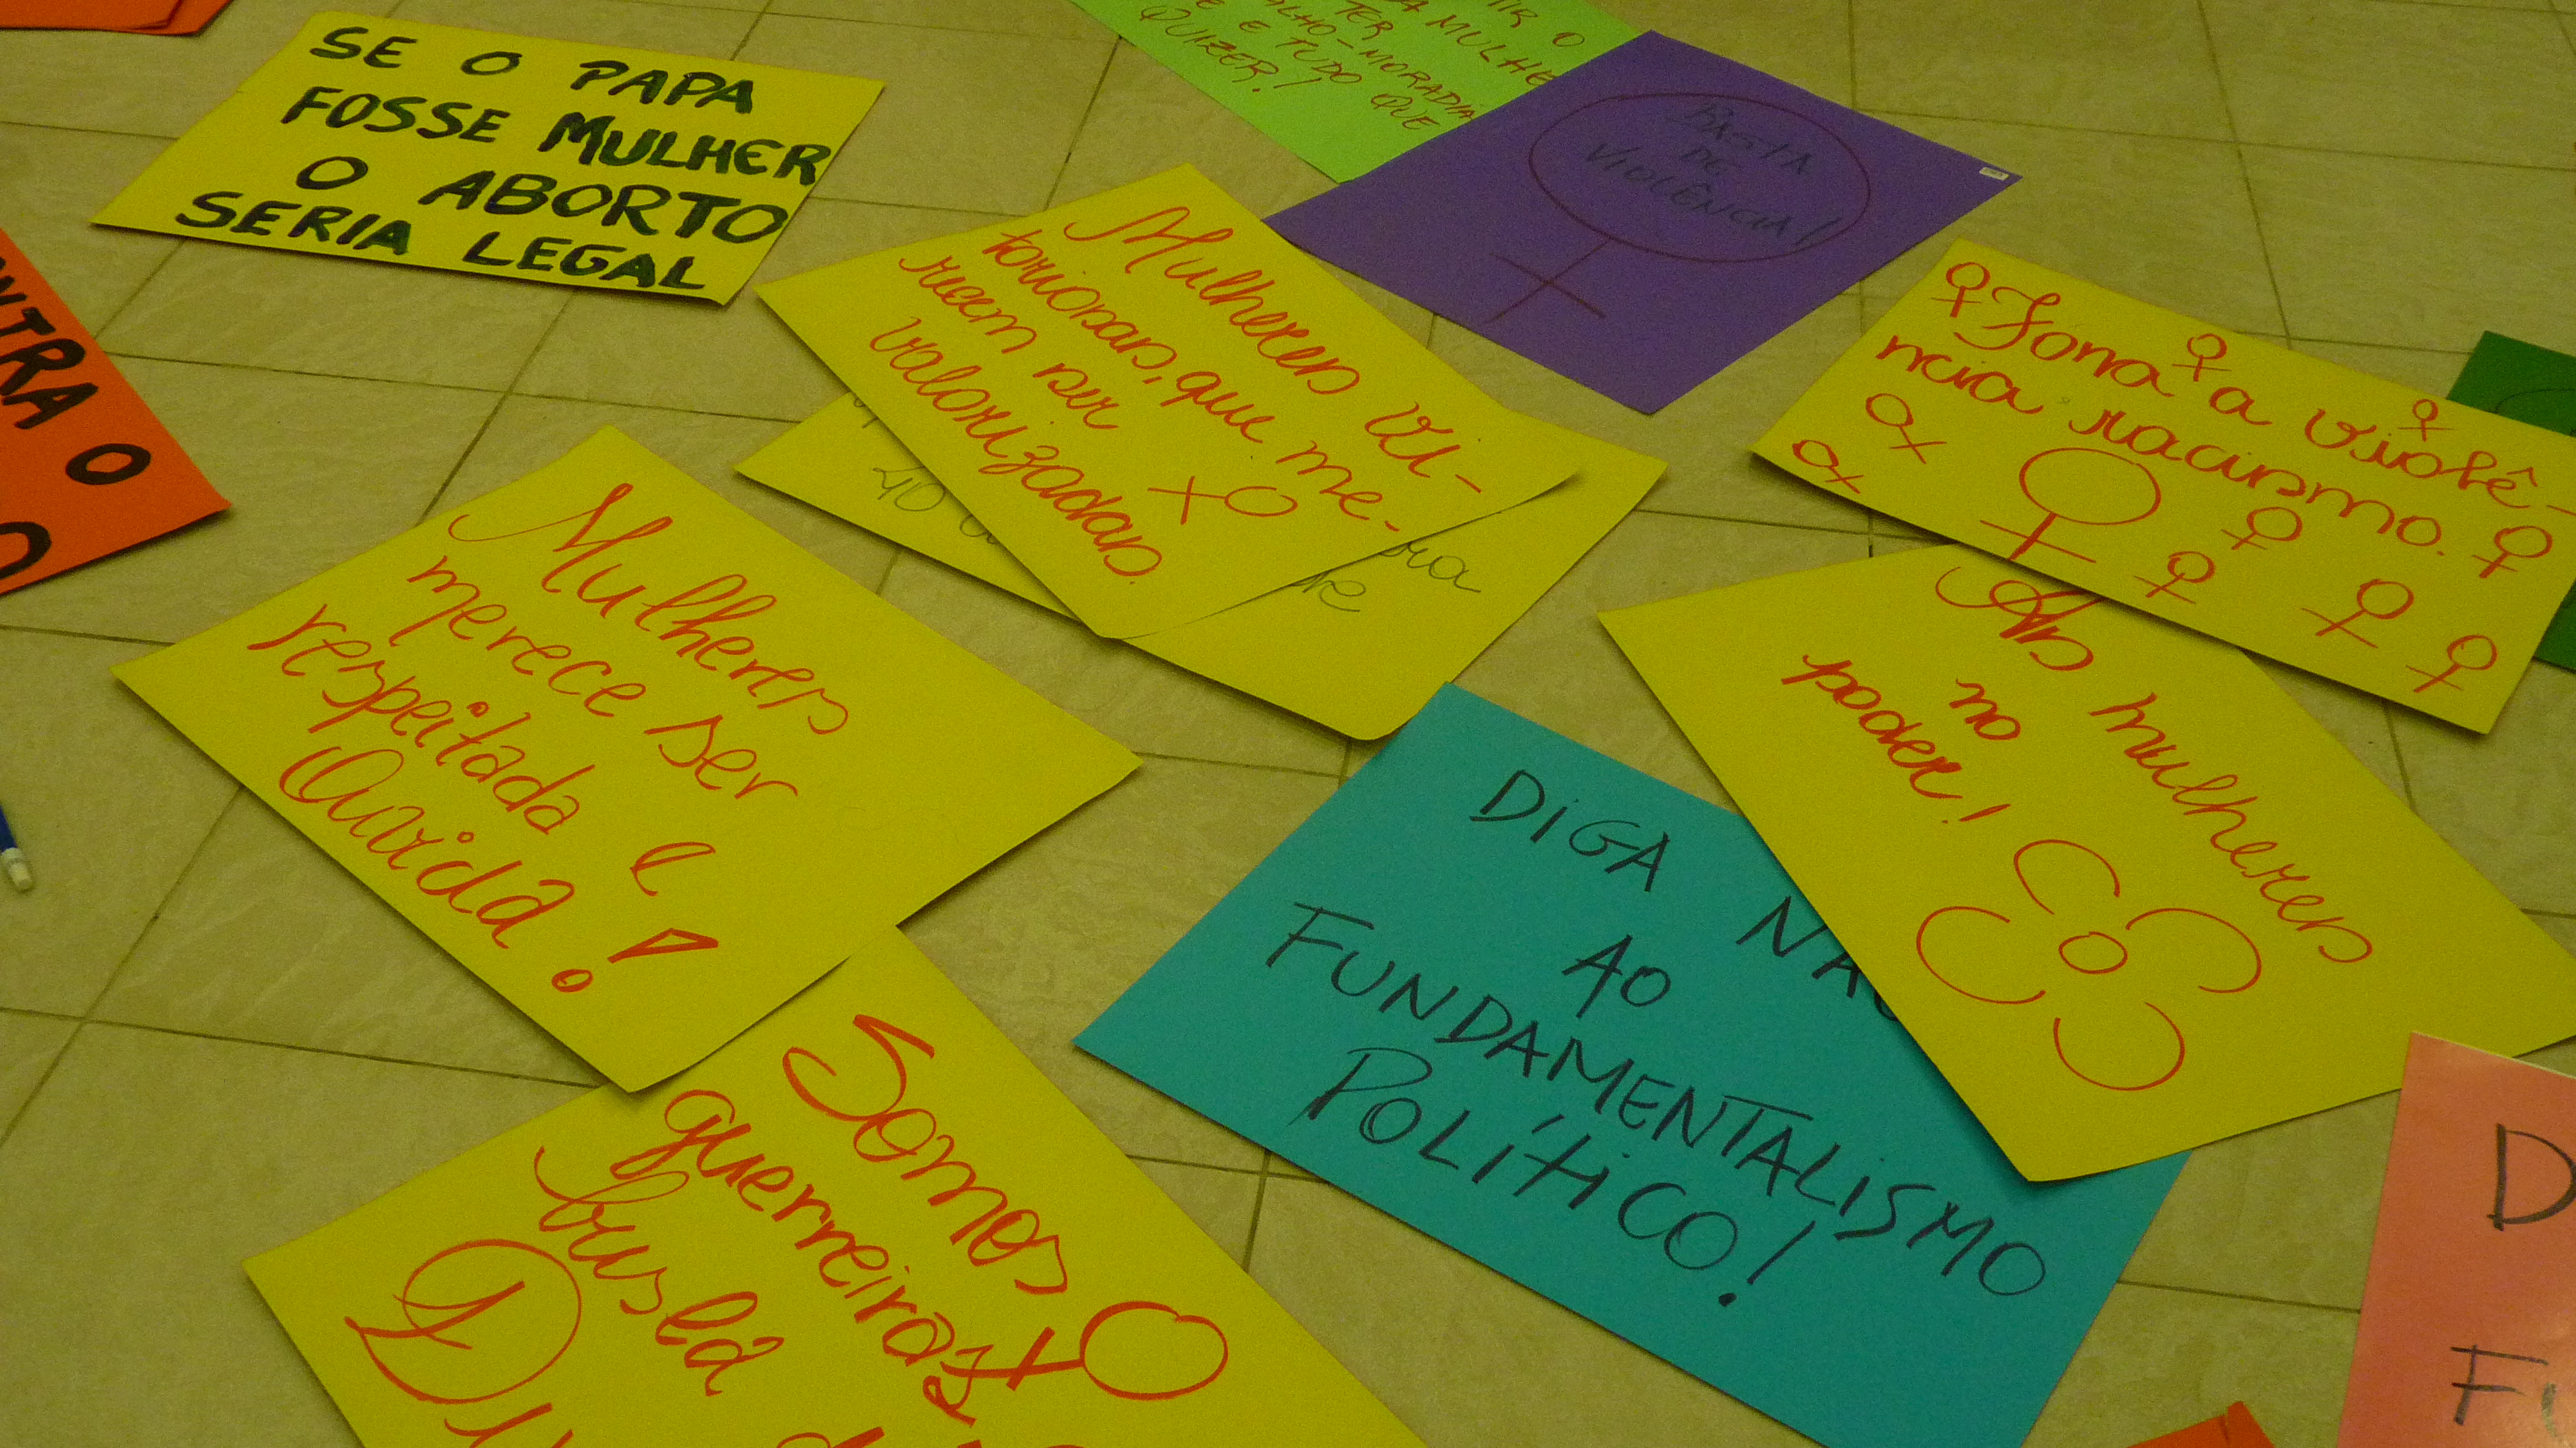 SE O PAPA
FOSSE MULHER
O ABORTO
SERIA LEGAL
O
TER
MULHE
-MORADIA
E TUDO QUE
QUIZER!
BASTA
DE
VIOLÊNCIA!
Mulheres vi-
toriosas, que me-
recem ser
valorizadas.
40
Fora a violê-
ncia racismo.
NTRA O
O
Mulheres
merece ser
respeitada e
Ouvida!
As mulheres
no
poder!
DIGA NÃO
AO
FUNDAMENTALISMO
POLÍTICO!
Somos
guerreiras
D
Fi